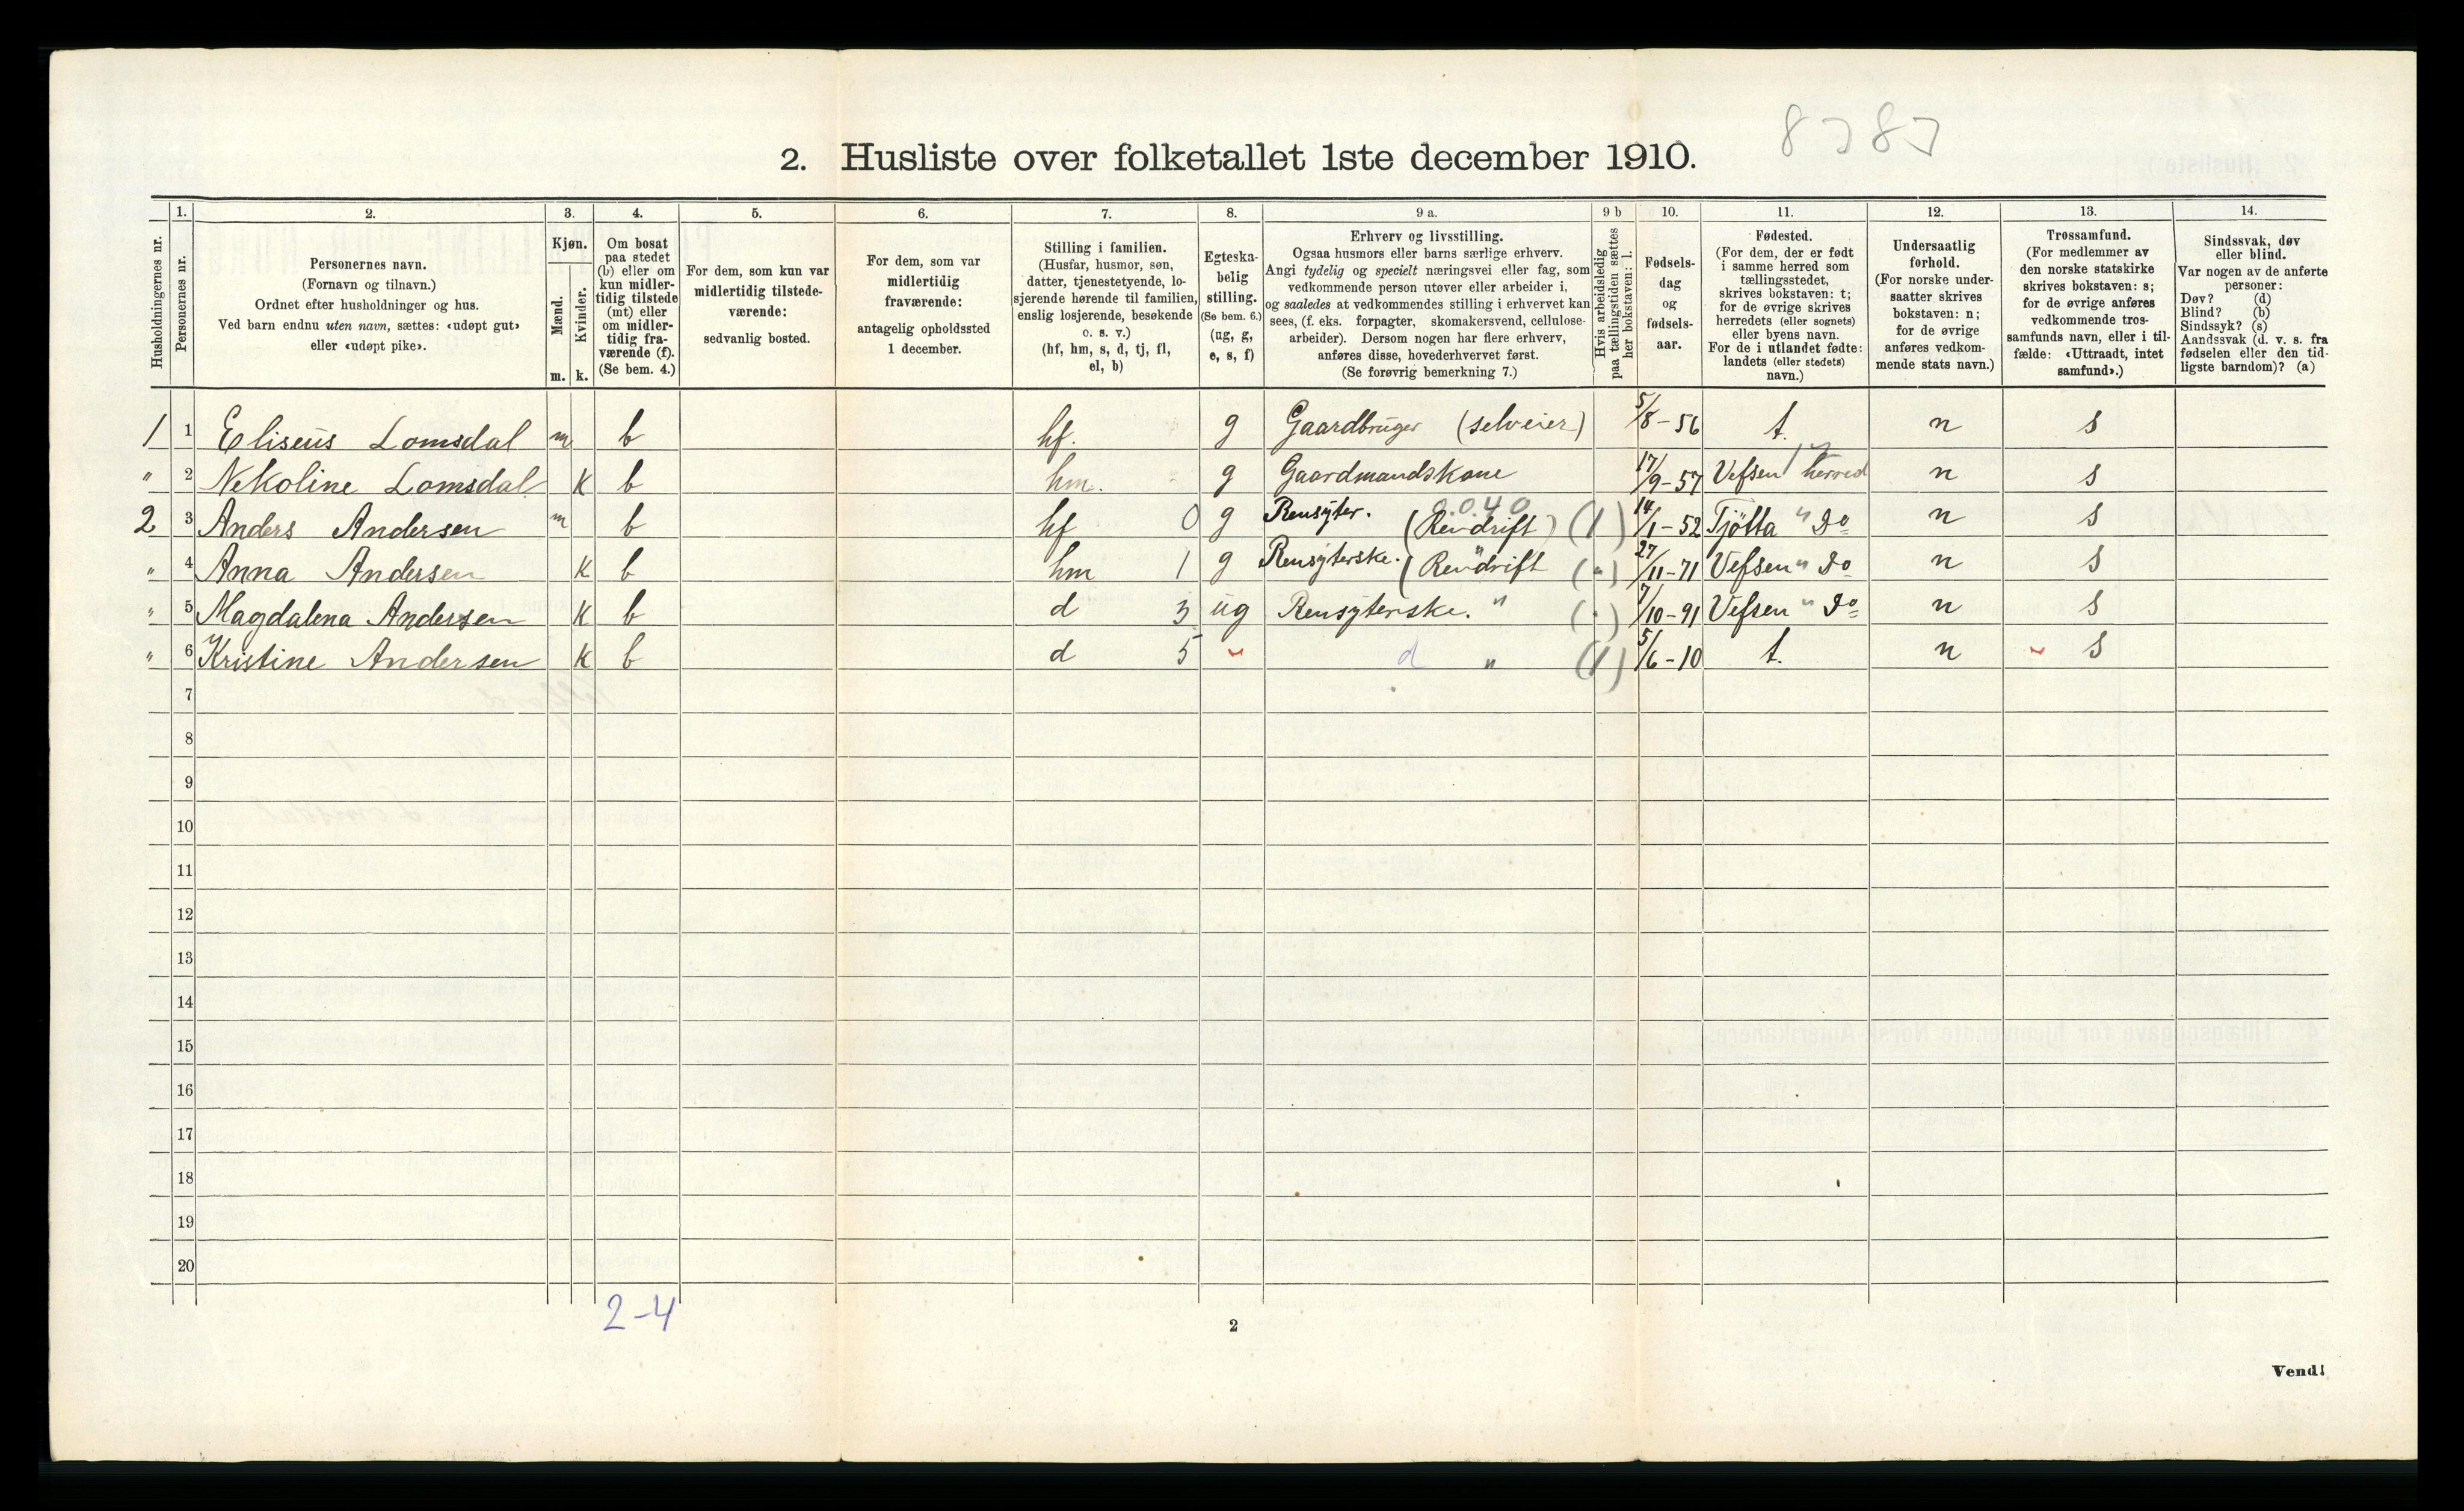 8787
2. Husliste over folketallet 1ste december 1910.
Husholdningernes nr.
1.
Personernes nr.
2.
Personernes navn.
(Fornavn og tilnavn.)
Ordnet efter husholdninger og hus.
Ved barn endnu uten navn, sættes: «udøpt gut»
eller «udøpt pike».
3.
Kjøn.
Mænd.
Kvinder.
m. k.
4.
Om bosat
paa stedet
(b) eller om
kun midler-
tidig tilstede
(mt) eller
om midler-
tidig fra-
værende (f).
(Se bem. 4.)
5.
For dem, som kun var
midlertidig tilstede-
værende:
sedvanlig bosted.
6.
For dem, som var
midlertidig
fraværende:
antagelig opholdssted
1 december.
7.
Stilling i familien.
(Husfar, husmor, søn,
datter, tjenestetyende, lo-
sjerende hørende til familien,
enslig losjerende, besøkende
o. s. v.)
(hf, hm, s, d, tj, fl,
el, b)
8.
Egteska-
belig
stilling.
(Se bem. 6.)
(ug, g,
e, s, f)
9 a.
Erhverv og livsstilling.
Ogsaa husmors eller barns særlige erhverv.
Angi tydelig og specielt næringsvei eller fag, som
vedkommende person utøver eller arbeider i,
og saaledes at vedkommendes stilling i erhvervet kan
sees, (f. eks. forpagter, skomakersvend, cellulose-
arbeider). Dersom nogen har flere erhverv,
anføres disse, hovederhvervet først.
(Se forøvrig bemerkning 7.)
9 b
Hvis arbeidsledig
paa tællingstiden sættes
her bokstaven: l.
10.
Fødsels-
dag
og
fødsels-
aar.
11.
Fødested.
(For dem, der er født
i samme herred som
tællingsstedet,
skrives bokstaven: t;
for de øvrige skrives
herredets (eller sognets)
eller byens navn.
For de i utlandet fødte:
landets (eller stedets)
navn.)
12.
Undersaatlig
forhold.
(For norske under-
saatter skrives
bokstaven: n;
for de øvrige
anføres vedkom-
mende stats navn.)
13.
Trossamfund.
(For medlemmer av
den norske statskirke
skrives bokstaven: s;
for de øvrige anføres
vedkommende tros-
samfunds navn, eller i til-
fælde: «Uttraadt, intet
samfund».)
14.
Sindssvak, døv
eller blind.
Var nogen av de anførte
personer:
Døv? (d)
Blind? (b)
Sindssyk? (s)
Aandssvak (d. v. s. fra
fødselen eller den tid-
ligste barndom)? (a)
1 1 Eliseus Lomsdal m b hf. g Gaardbruger (selveier) 5/8-56 t. n s
" 2 Nekoline Lomsdal K b hm. g Gaardmandskone 17/9-57 Vefsen herred n s
2 3 Anders Andersen m b hf 0 g Rensyter. (Rendrift) 0.0.40 (1) 14/1-52 Tjötta " Do n s
" 4 Anna Andersen K b hm 1 g Rensyterske. (Rendrift (") 27/11-71 Vefsen " Do n s
" 5 Magdalena Andersen K b d 3 ug Rensyterske. " (") 7/10-91 Vefsen " Do n s
" 6 Kristine Andersen K b d 5 d " (1) 5/6-10 t. n s
7
8
9
10
11
12
13
14
15
16
17
18
19
20
2-4
2
Vend!